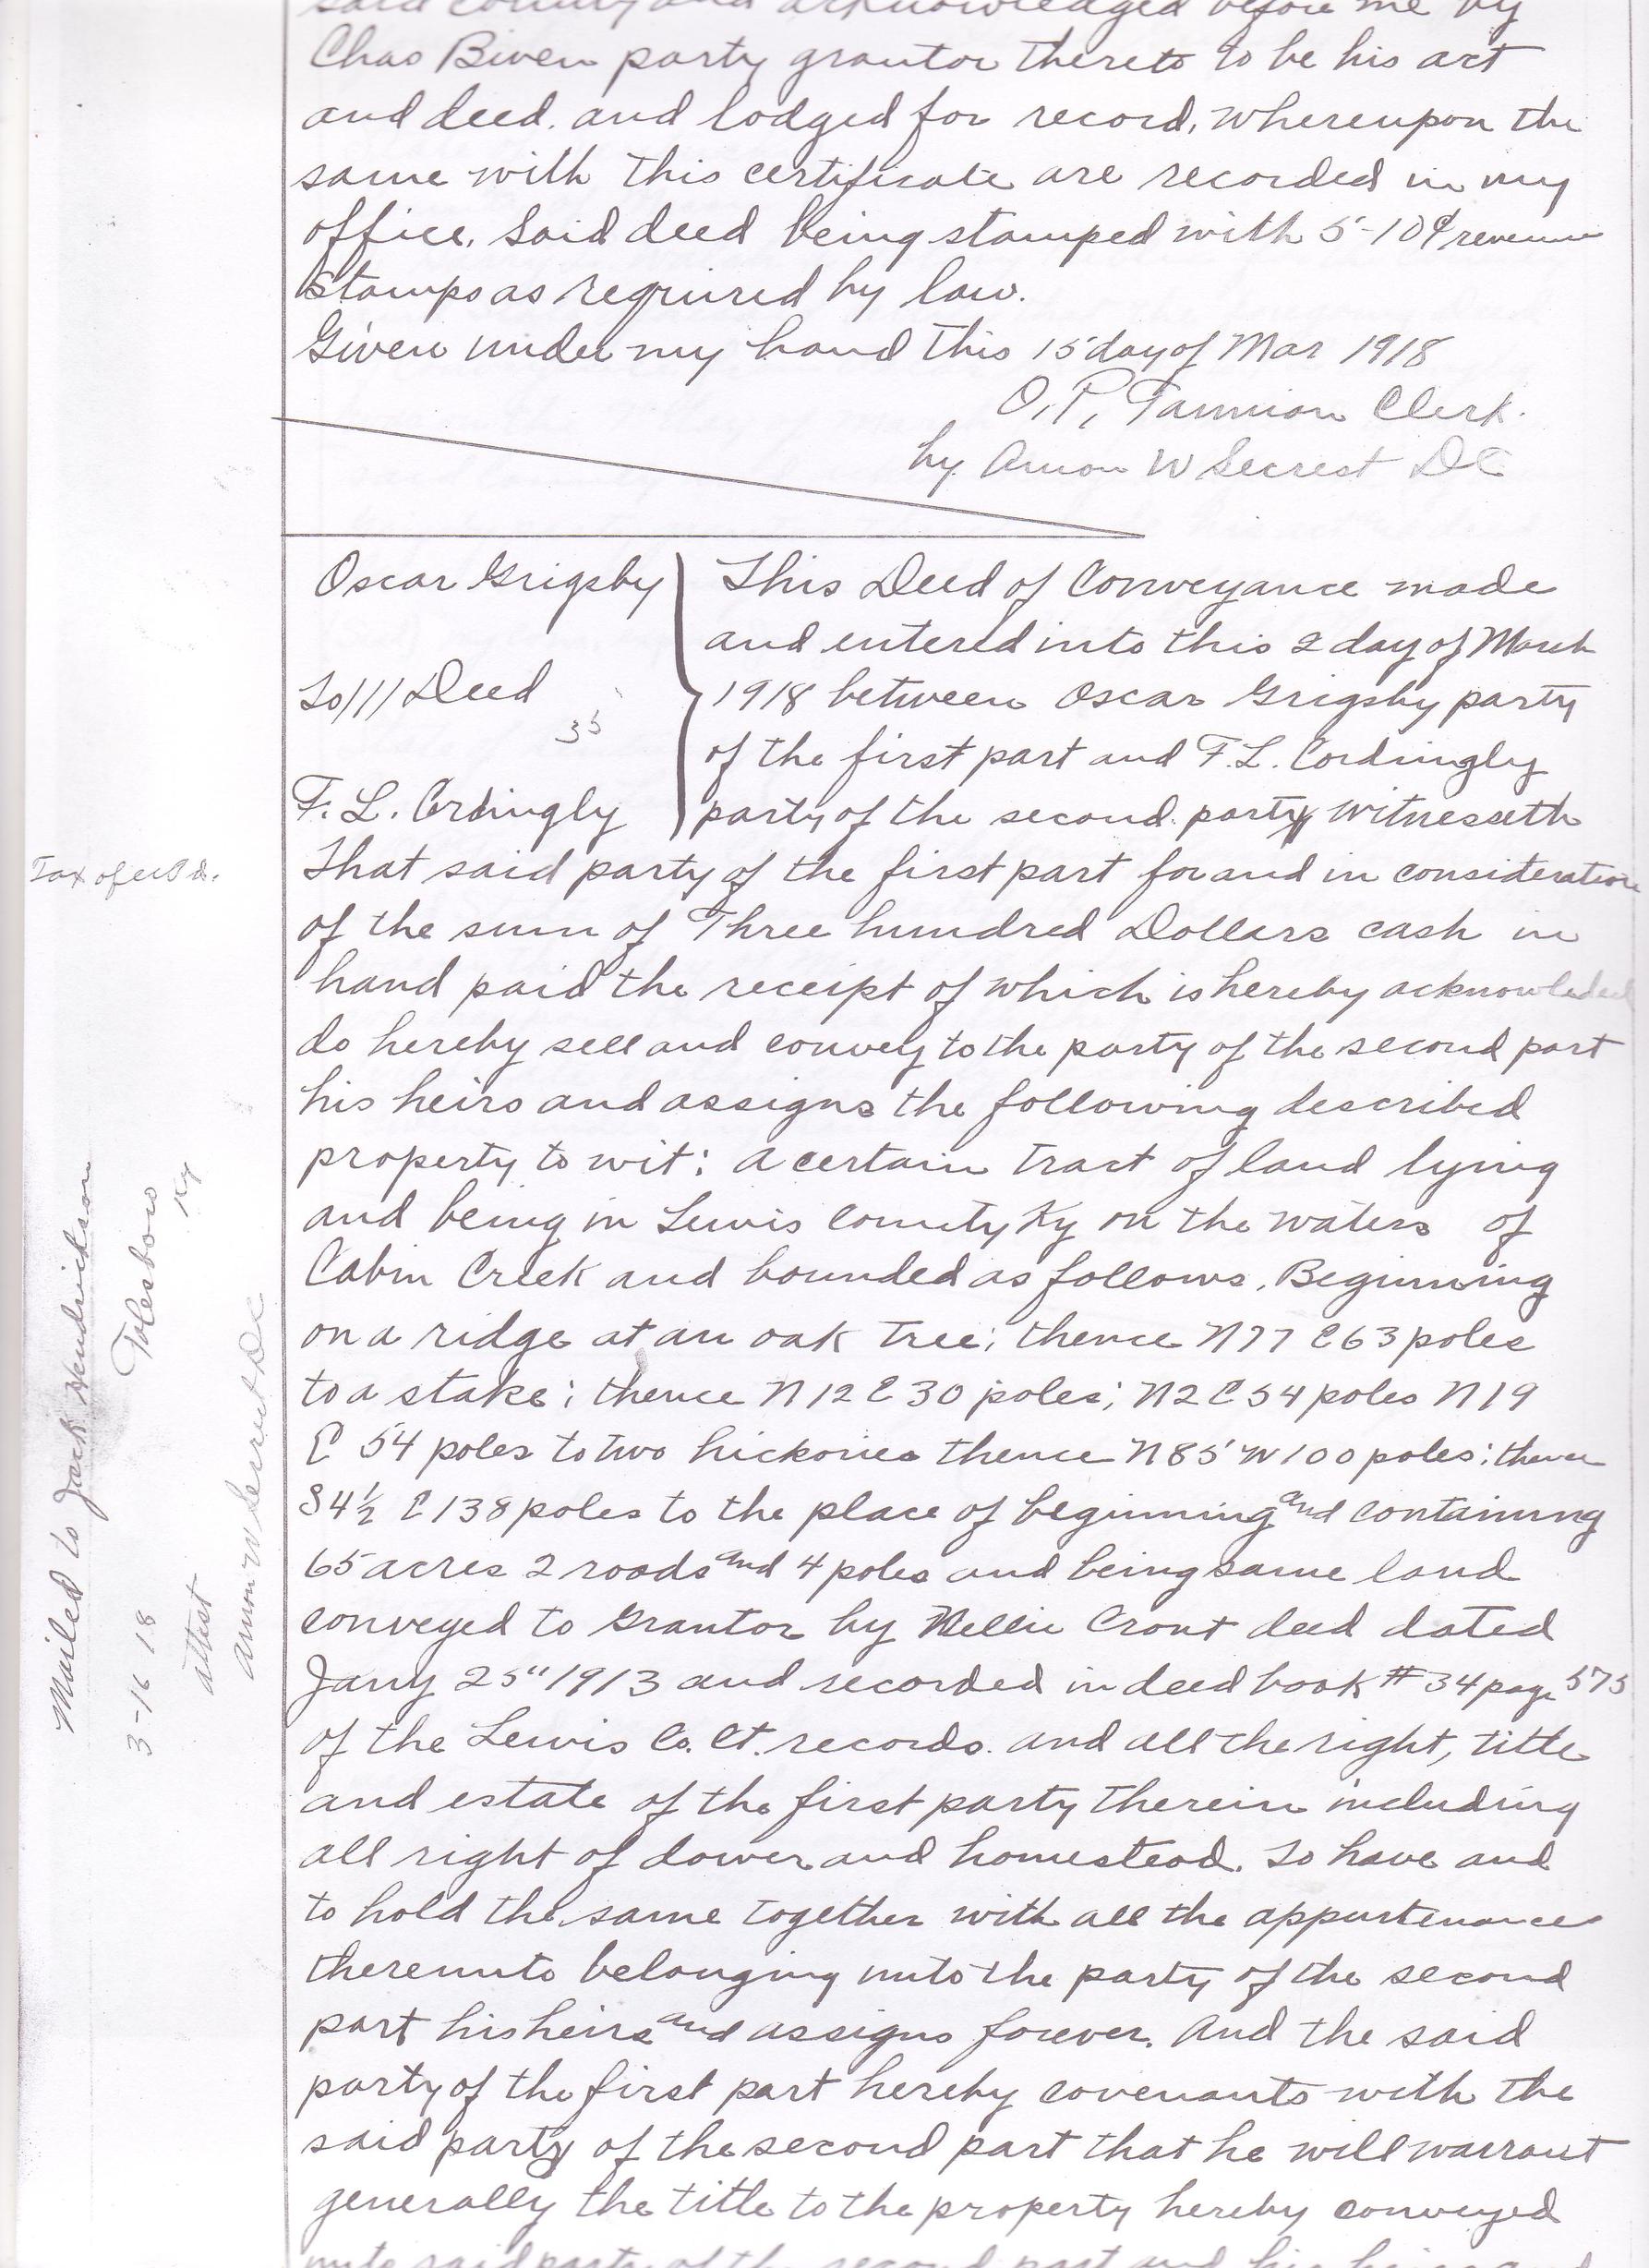 said county and acknowledged before me by
Chas Biven party grantor thereto to be his act
and deed. and lodged for record, whereupon the
same with this certificate are recorded in my
office. Said deed being stamped with 5-10¢ revenue
stamps as required by law.
Given under my hand this 15 day of Mar 1918
O. P. Clerk.
by Amon W Secrest DC
Oscar Grigsby
To /// Deed
35
F. L. Cordingly
This Deed of Conveyance made
and entered into this 2 day of March
1918 between Oscar Grigsby party
of the first part and F. L. Cordingly
party of the second party witnesseth
Tax of
That said party of the first part for and in consideration
of the sum of Three hundred Dollars cash in
hand paid the receipt of which is hereby acknowleded
do hereby sell and convey to the party of the second part
his heirs and assigns the following described
property to wit: a certain tract of land lying
and being in Lewis County Ky on the waters of
Cabin Creek and bounded as follows. Beginning
on a ridge at an oak tree; thence N77 E63 poles
to a stake; thence N12 E 30 poles; N2 E 54 poles N19
E 54 poles to two hickories thence N85 W100 poles; thence
S4½ E138 poles to the place of beginning and containing
65 acres 2 roods and 4 poles and being same land
conveyed to Grantor by Nellie Crout deed dated
Jany 25" 1913 and recorded in deed book # 34 page 575
of the Lewis Co. Ct. records. and all the right, title
and estate of the first party therein including
all right of dower and homestead. To have and
to hold the same together with all the appurtenances
thereunto belonging unto the party of the second
part his heirs and assigns forever. And the said
party of the first part hereby covenants with the
said party of the second part that he will warrant
generally the title to the property hereby conveyed
unto said party of the second part and his heirs and
Mailed to Jack Hendrickson
Tolesboro
Ky
3-16 18
attest
Amon W Secrest DC